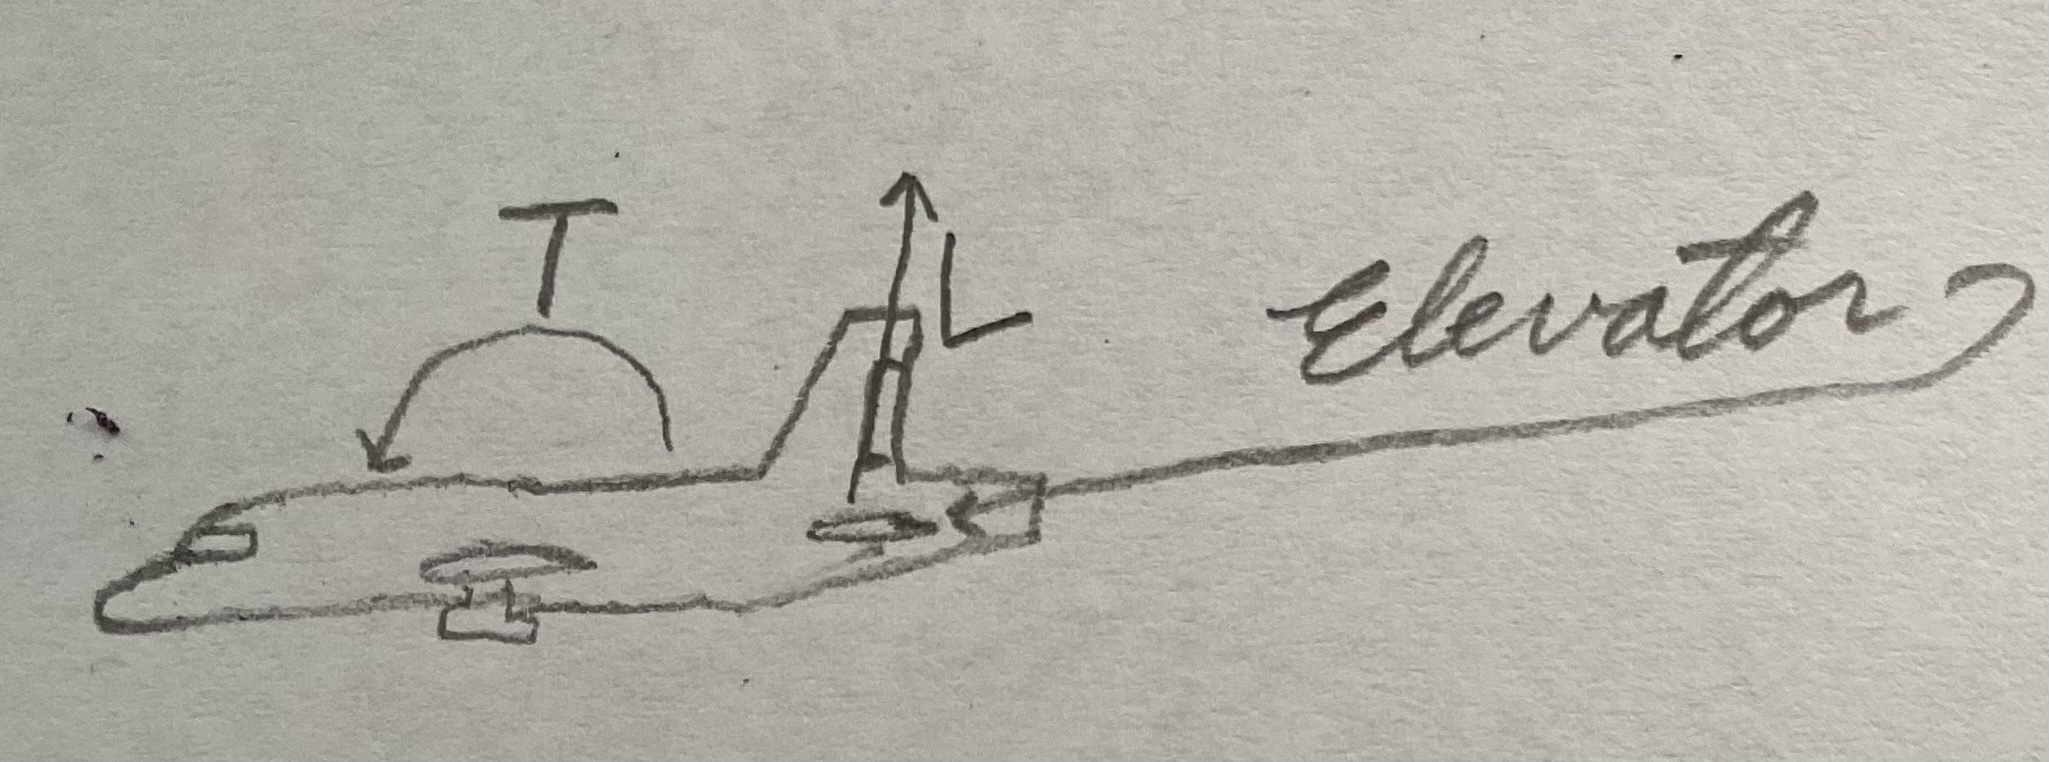 T
L
Elevator